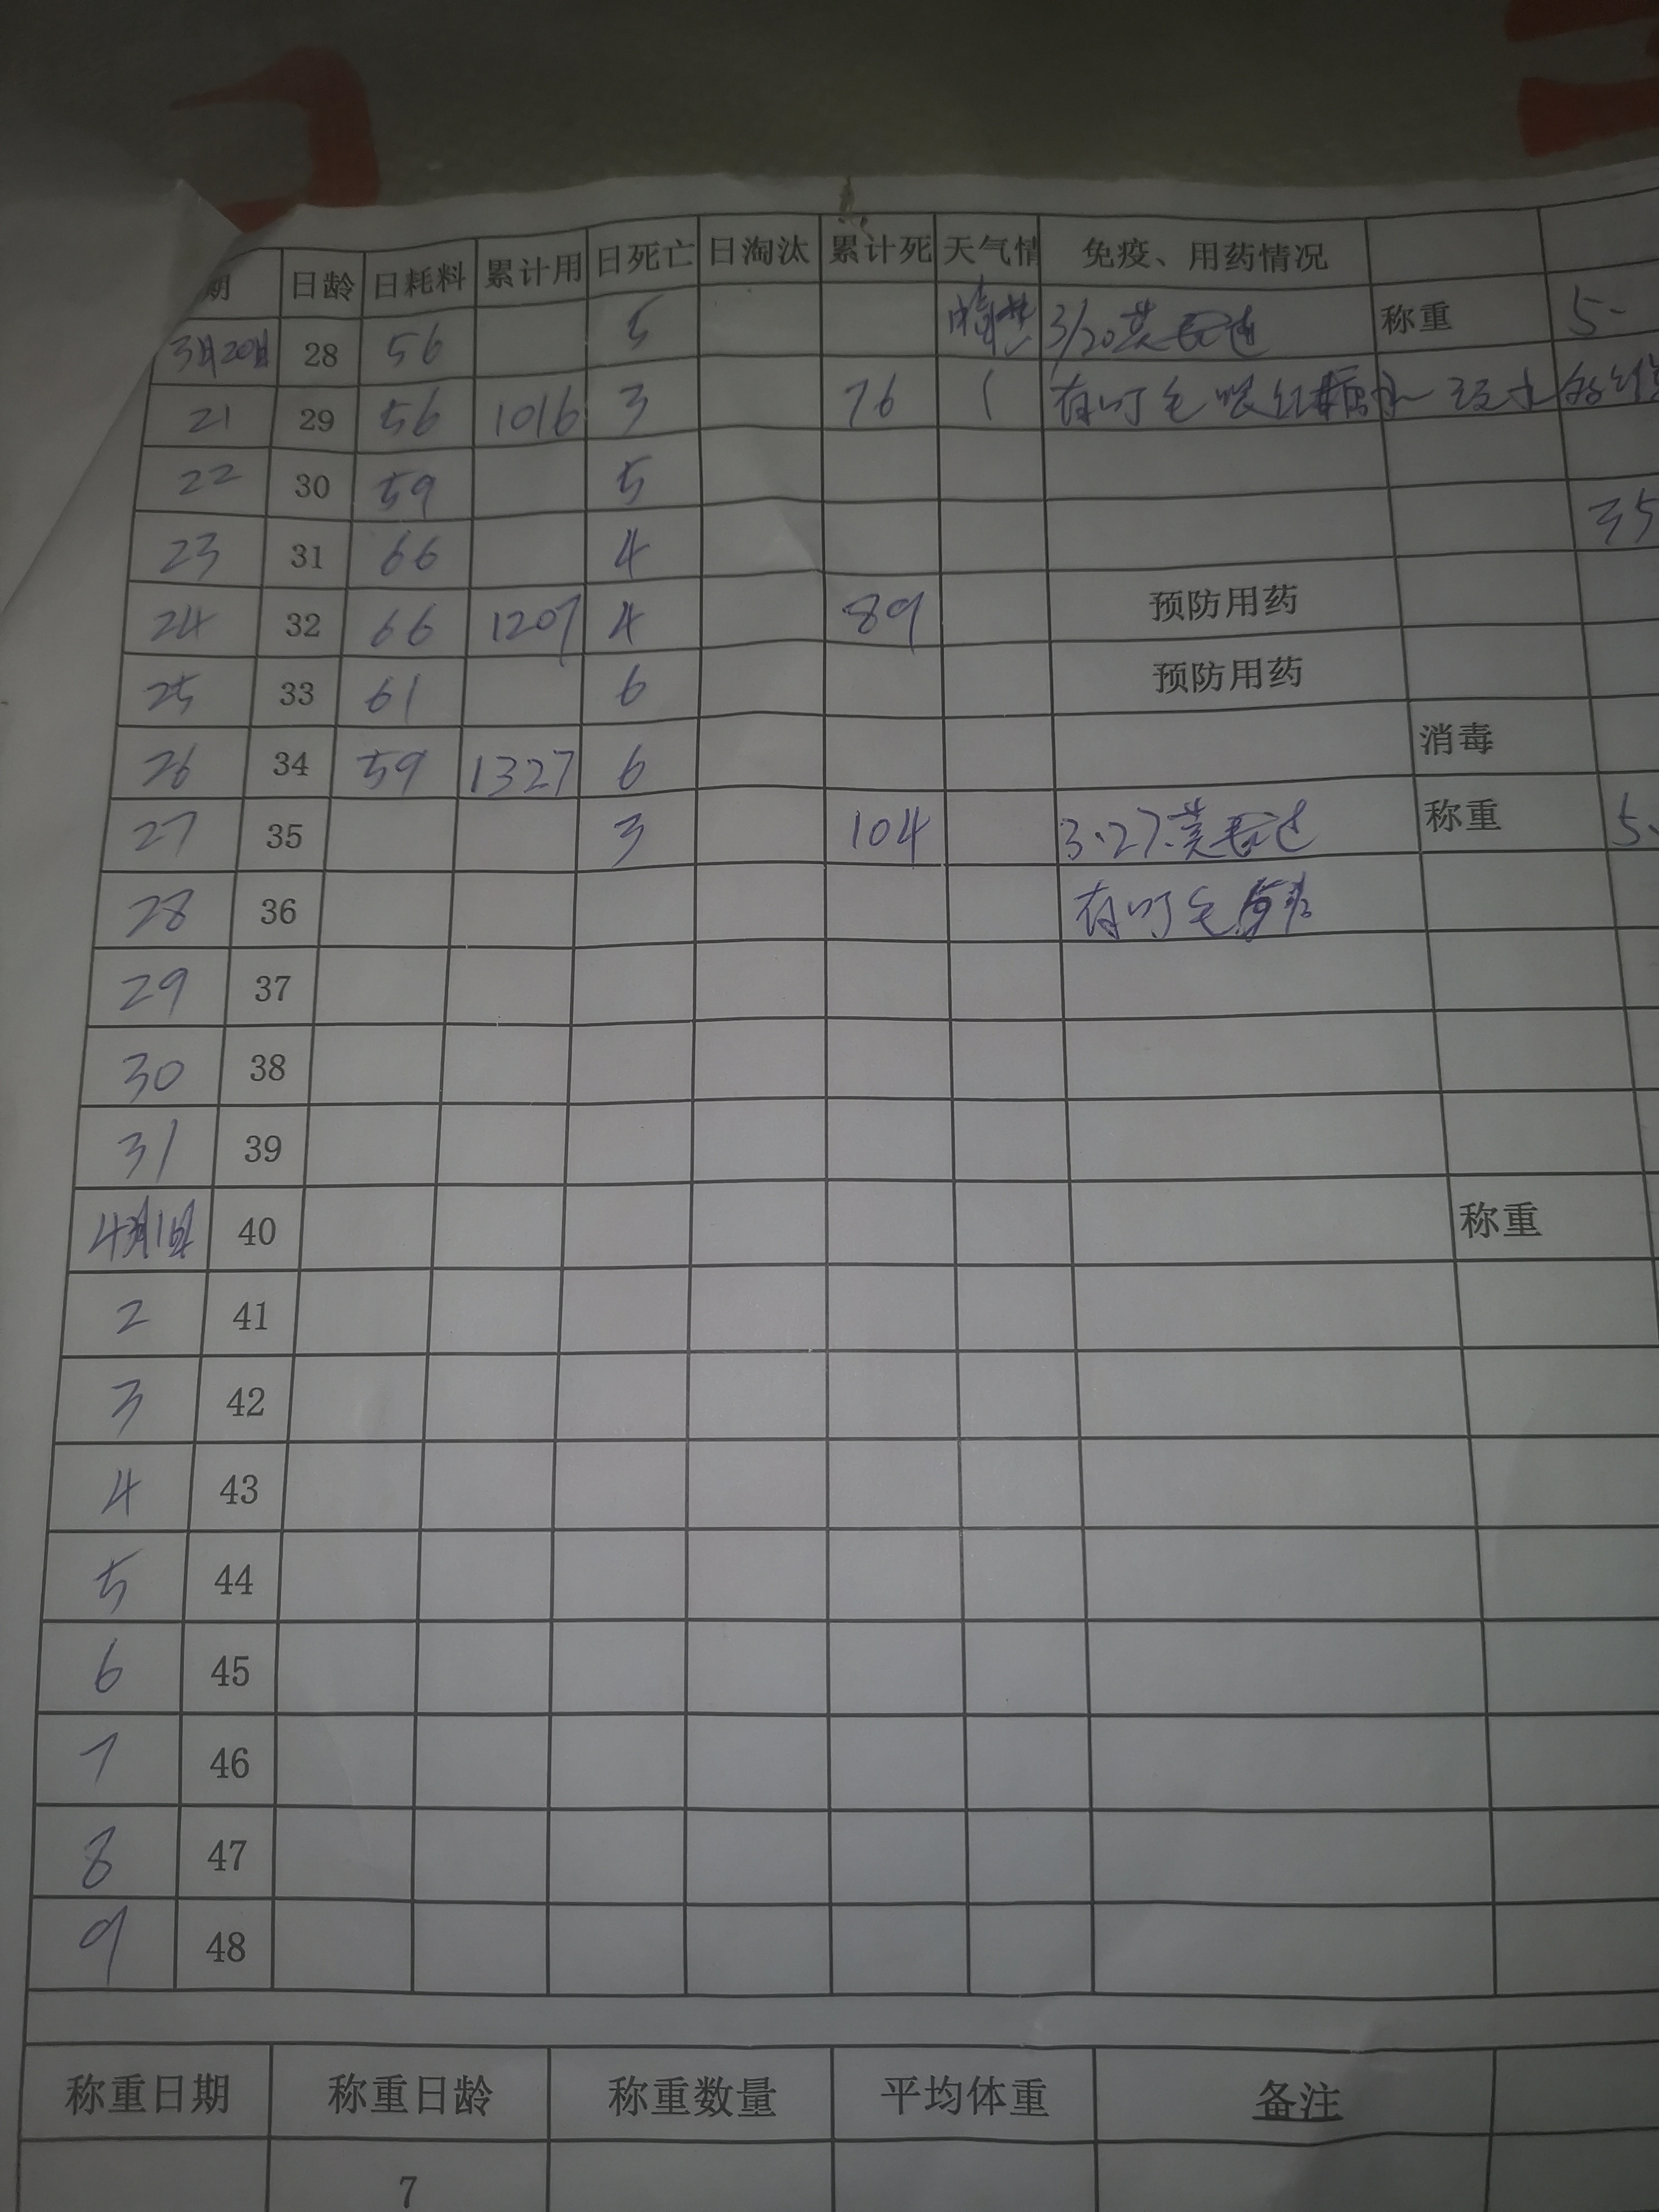 期 日龄 日耗料 累计用 日死亡 日淘汰 累计死 天气情 免疫、用药情况
3月20日 28 56 5 晴 3/20 称重 5.
21 29 56 1016 3 76 有叮毛 红糖水
22 30 59 5
23 31 66 4 35
24 32 66 1207 4 89 预防用药
25 33 61 6 预防用药
26 34 59 1327 6 消毒
27 35 3 104 3.27. 称重 5.
28 36 有叮毛
29 37
30 38
31 39
4月1日 40 称重
2 41
3 42
4 43
5 44
6 45
7 46
8 47
9 48
称重日期 称重日龄 称重数量 平均体重 备注
7